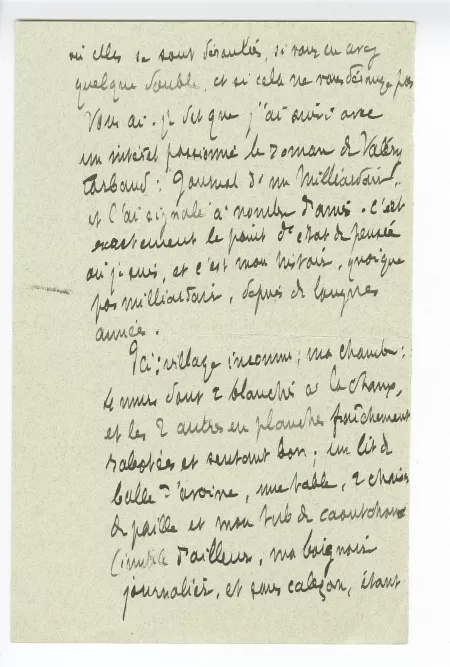 où elles se sont déroulées, si vous en avez
quelque doute, et si cela ne vous dérange pas
Vous ai-je dit que j'ai suivi avec
un intérêt passionné le roman de Valéry
Larbaud : Journal d'un Milliardaire,
et l'ai signalé à nombre d'amis. C'est
exactement le point d'état de pensée
où je suis, et c'est mon histoire, quoique
pas milliardaire, depuis de longues
années.
Ici : village inconnu ; ma chambre :
4 murs dont 2 blanchis à la chaux,
et les 2 autres en planches fraîchement
rabotées et sentant bon ; un lit de
balle d'avoine, une table, 2 chaises
de paille et mon tub de caoutchouc
(inutile d'ailleurs, ma baignoire
journalière, et sans caleçon, étant